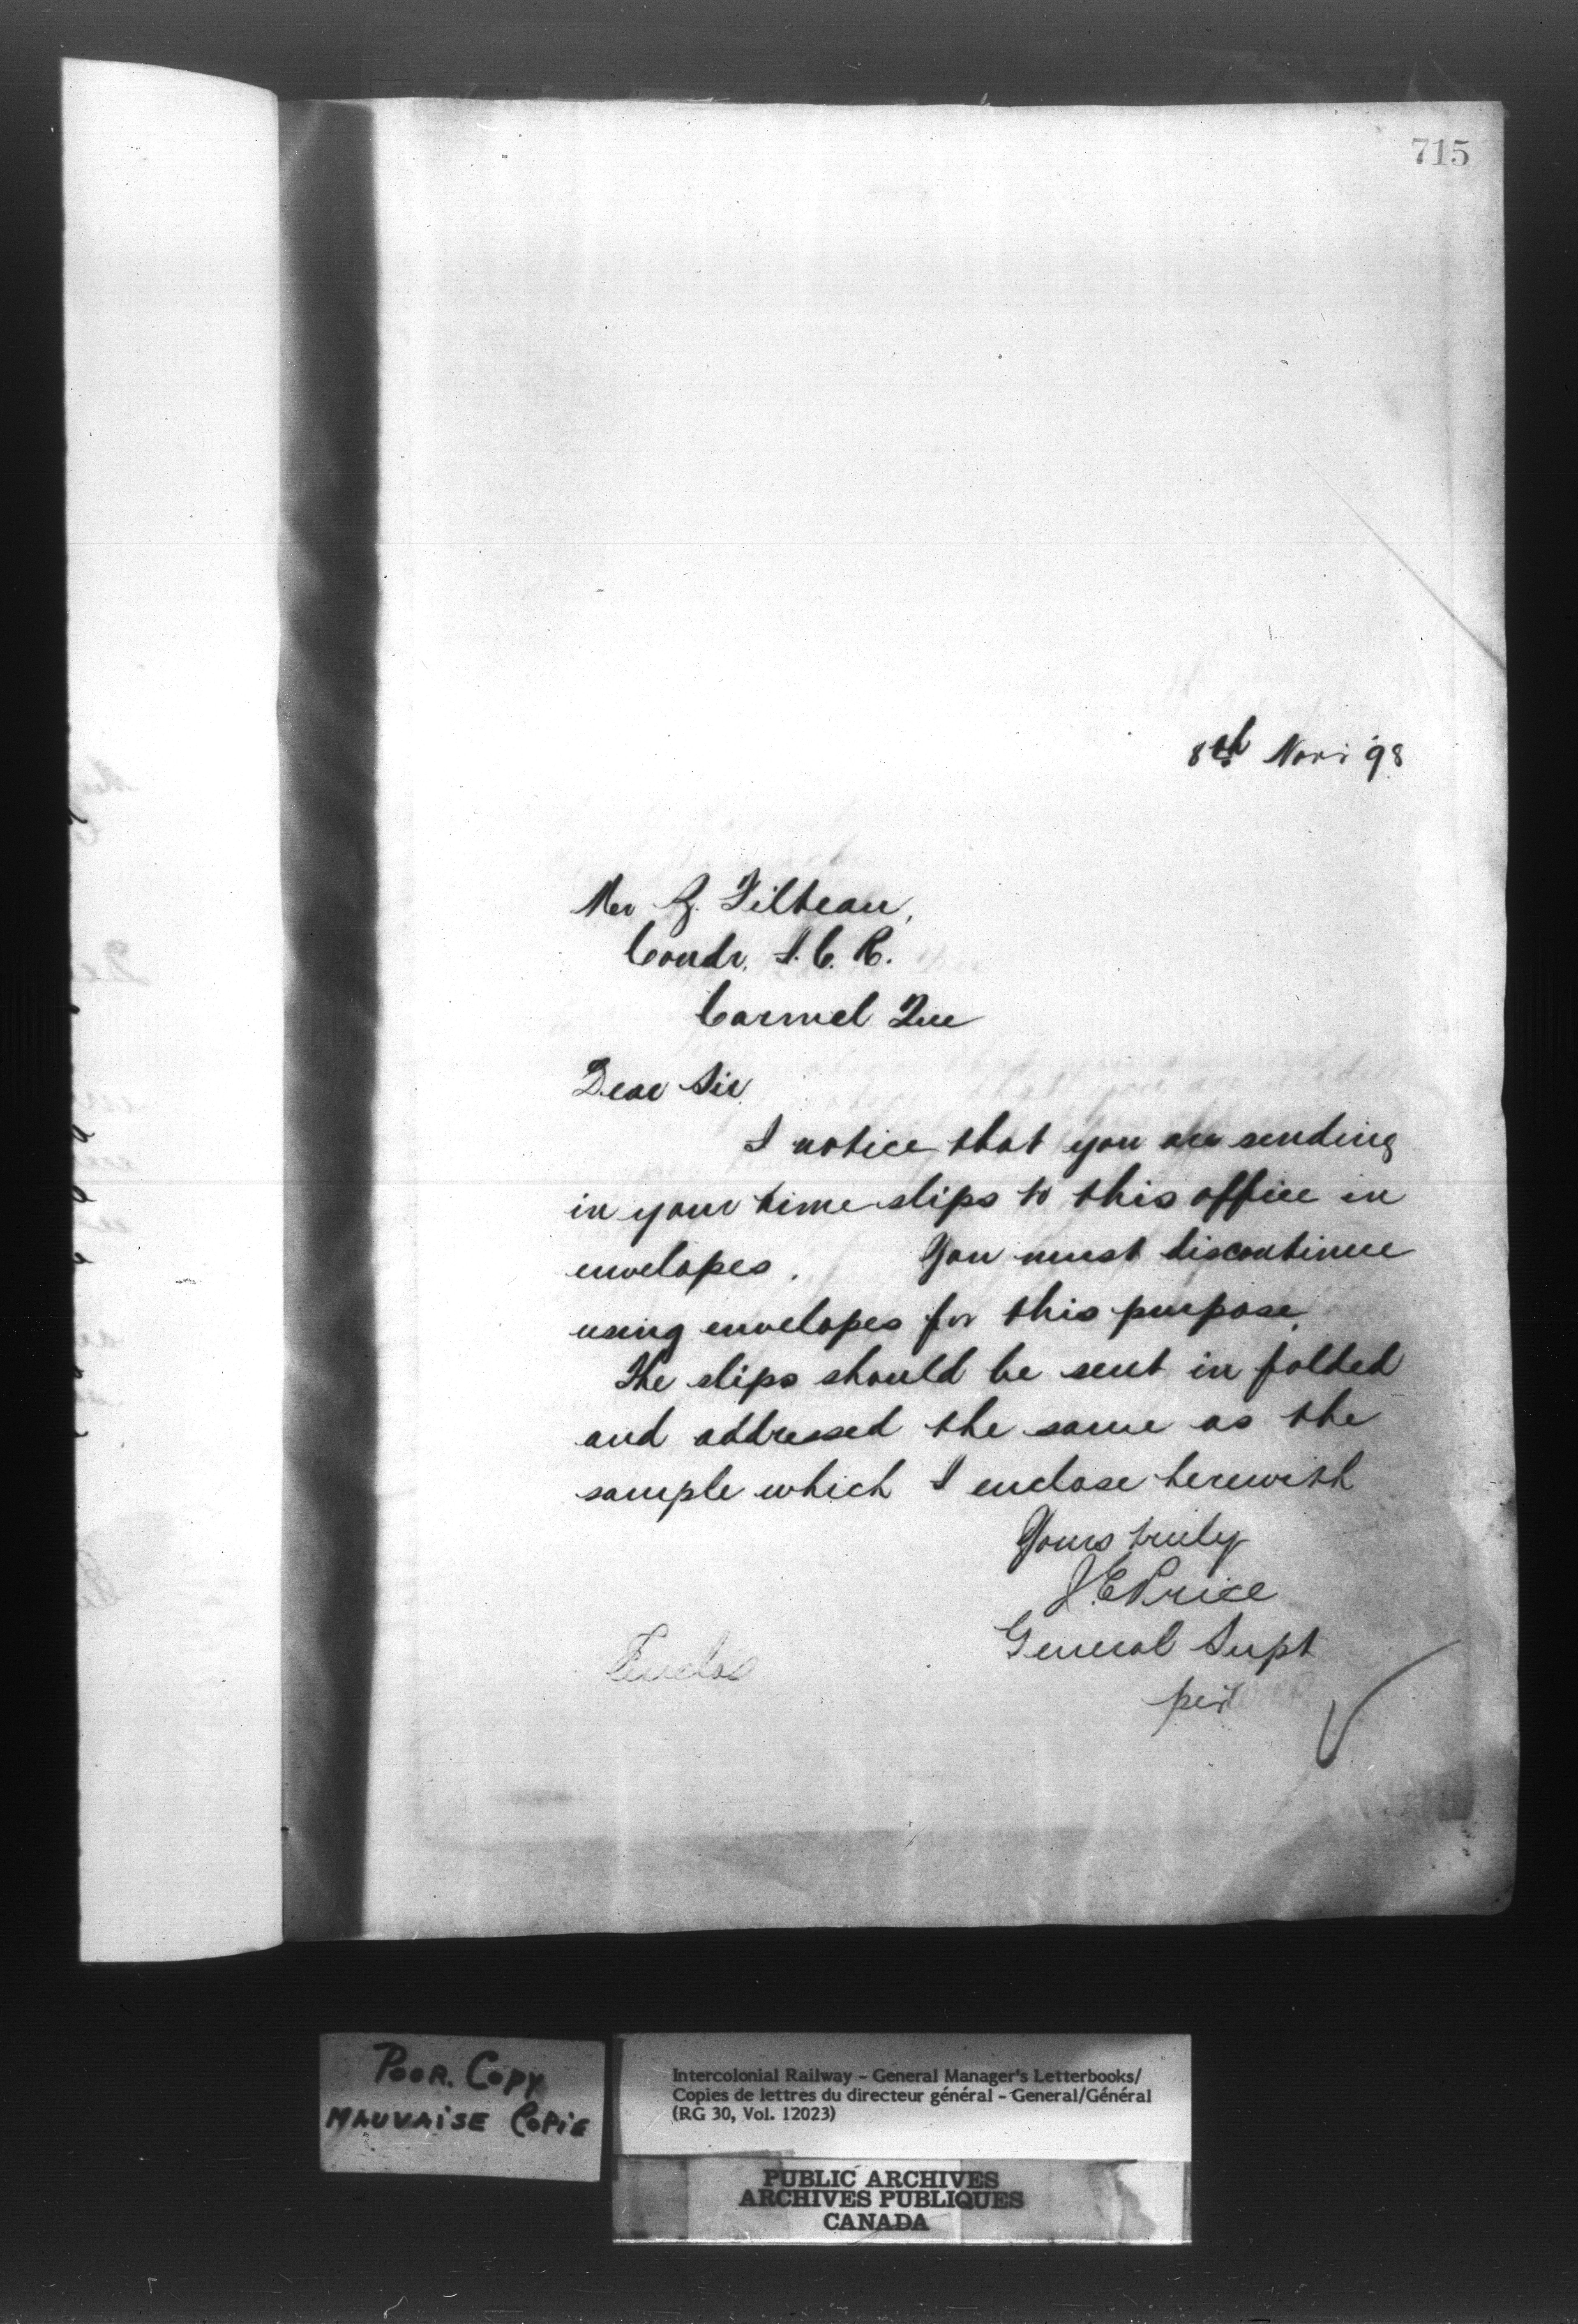 715
8th Nov. '98
Mr Z. Filteau,
Condr. I. C. R.
Carmel Que
Dear Sir
I notice that you are sending
in your time slips to this office in
envelopes. You must discontinue
using envelopes for this purpose.
The slips should be sent in folded
and addressed the same as the
sample which I enclose herewith
Yours truly
J.E Price
General Supt
per
Enclos
POOR. COPY
MAUVAISE COPIE
Intercolonial Railway - General Manager's Letterbooks/
Copies de lettres du directeur général - General/Général
(RG 30, Vol. 12023)
PUBLIC ARCHIVES
ARCHIVES PUBLIQUES
CANADA